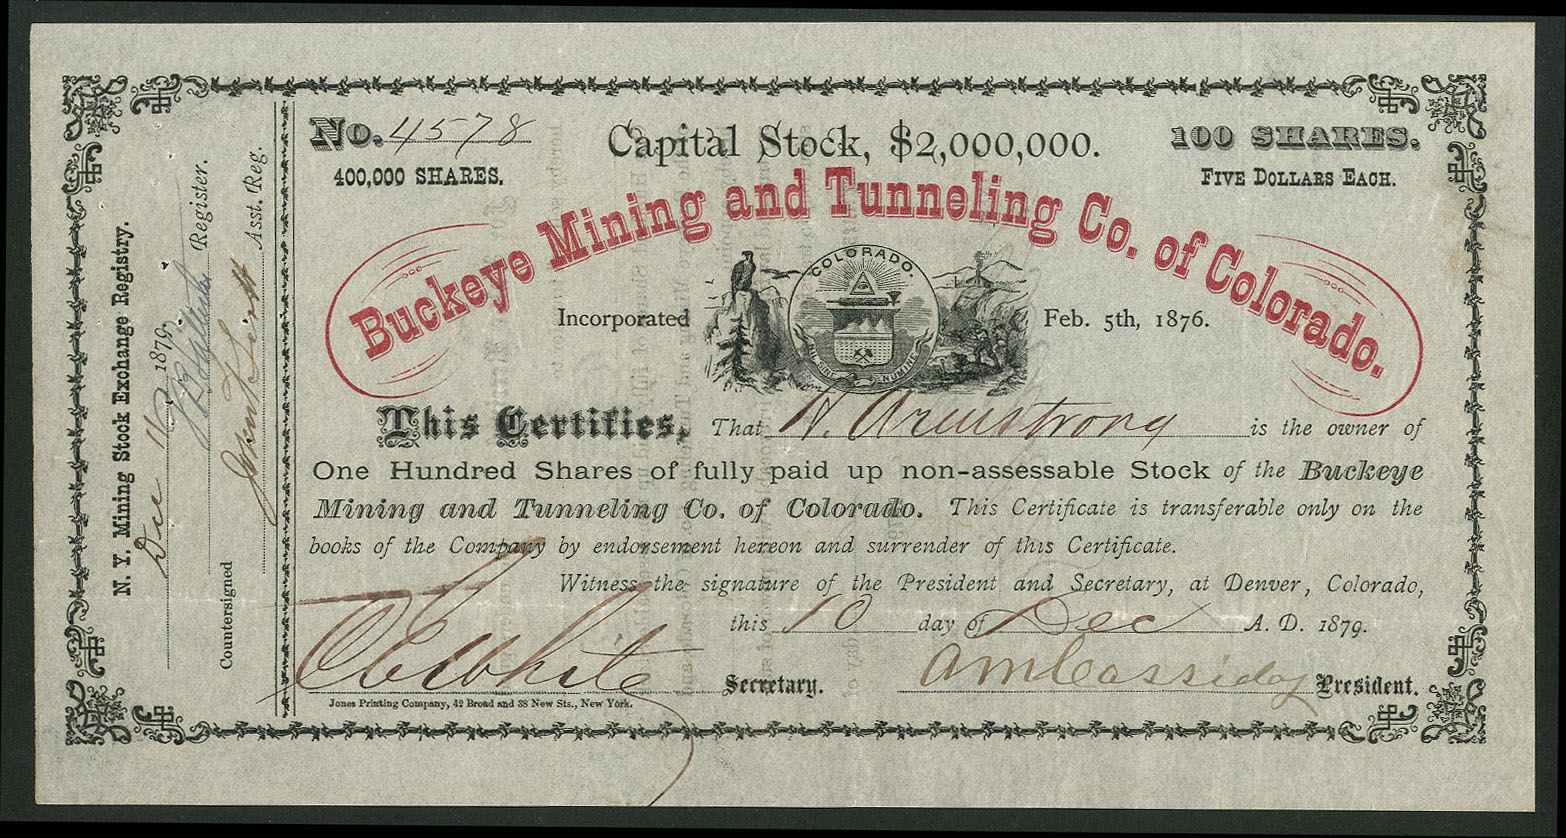 No. 4578
Capital Stock, $2,000,000.
100 SHARES.
400,000 SHARES.
FIVE DOLLARS EACH.
Buckeye Mining and Tunneling Co. of Colorado.
COLORADO.
NIL SINE NUMINE
Incorporated Feb. 5th, 1876.
This Certifies, That H. Armstrong is the owner of
One Hundred Shares of fully paid up non-assessable Stock of the Buckeye
Mining and Tunneling Co. of Colorado. This Certificate is transferable only on the
books of the Company by endorsement hereon and surrender of this Certificate.
Witness the signature of the President and Secretary, at Denver, Colorado,
this 10 day of Dec A. D. 1879.
White Secretary.
A M Cassiday President.
Jones Printing Company, 42 Broad and 38 New Sts., New York.
N. Y. Mining Stock Exchange Registry.
Dec 1879.
Countersigned Register.
John Asst. Reg.